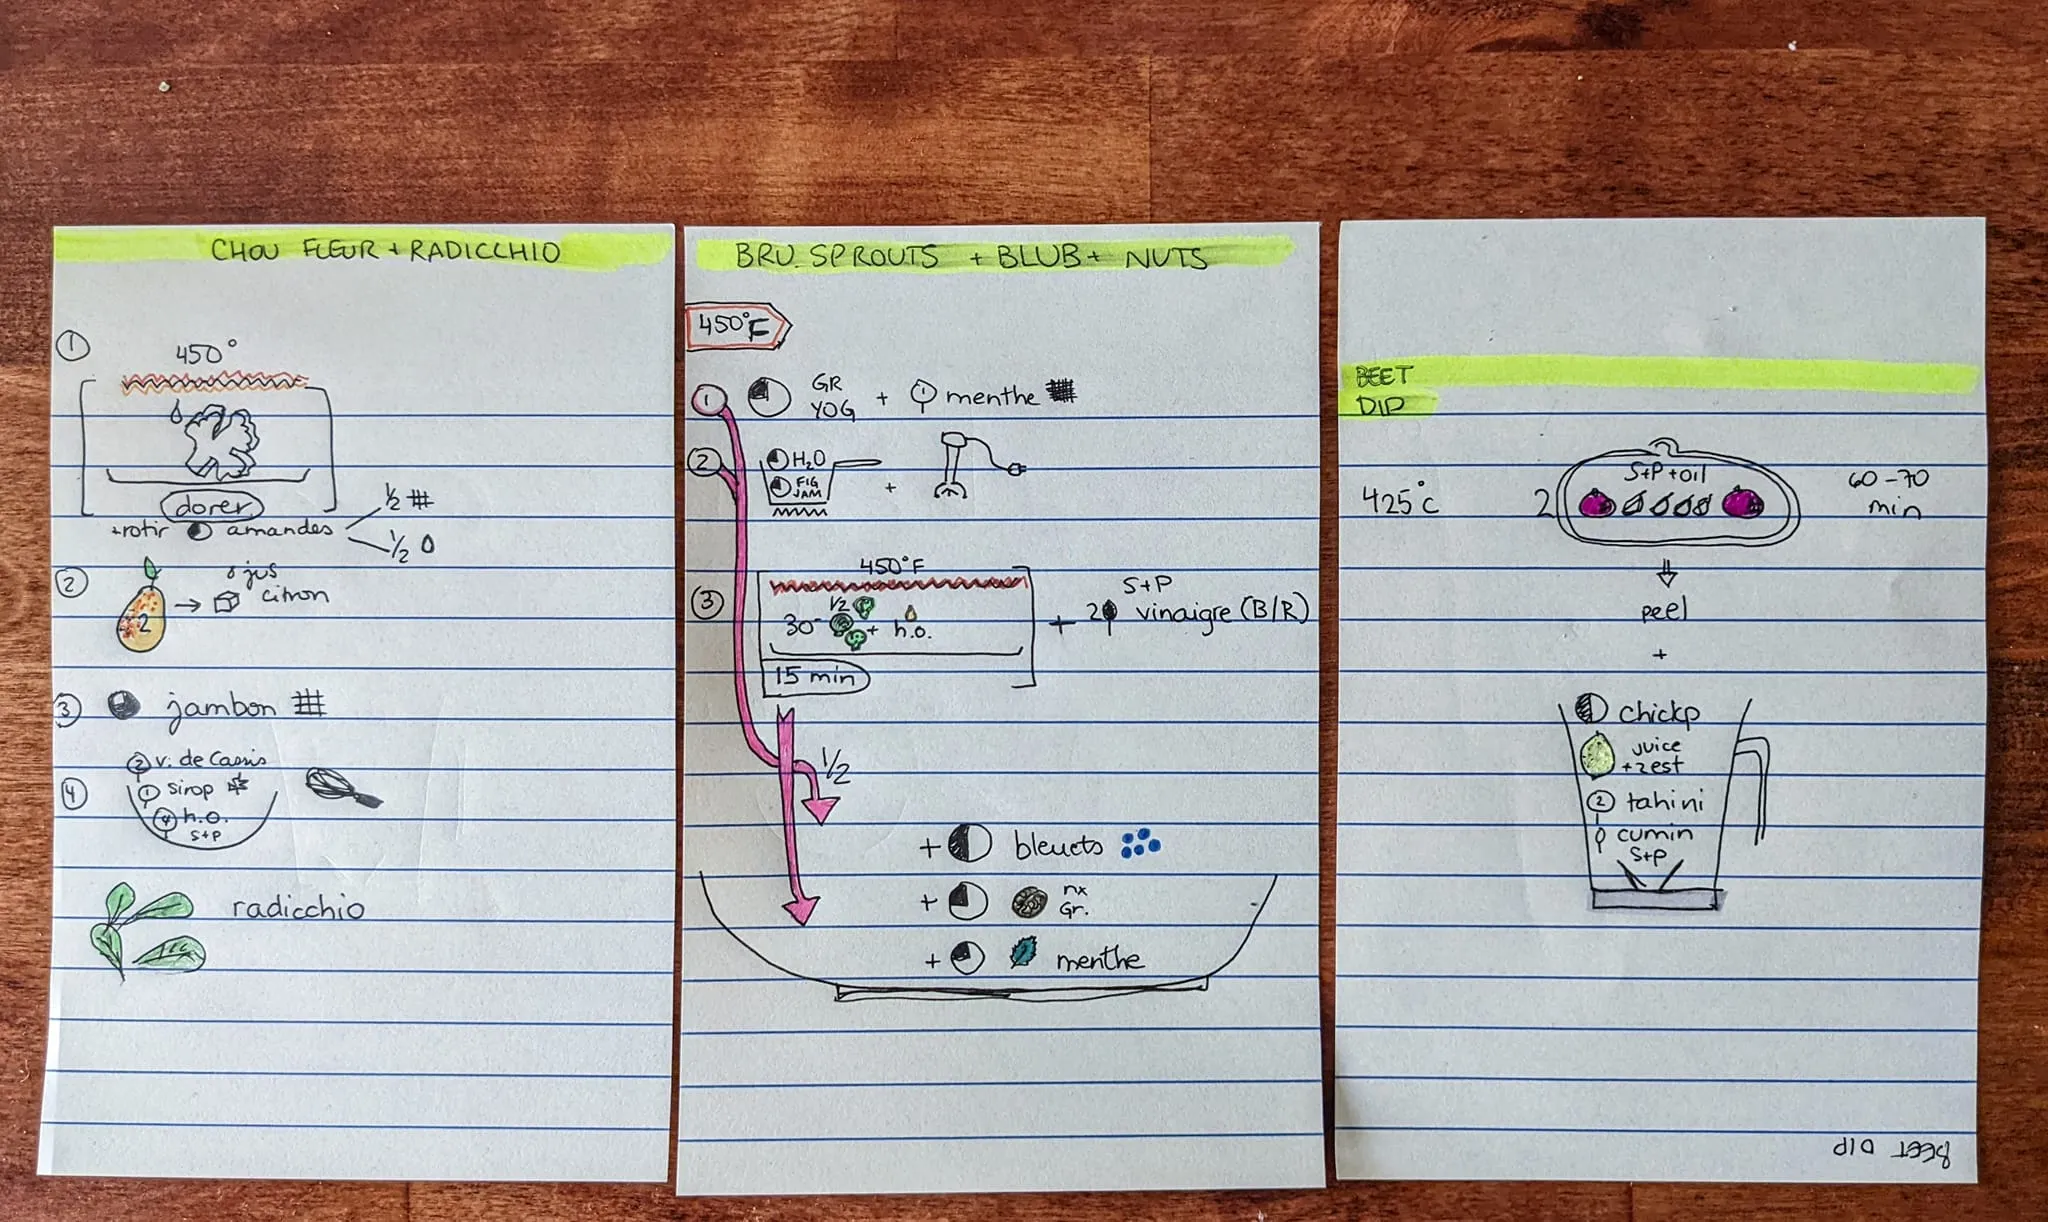 CHOU FLEUR + RADICCHIO
1
450°
dorer
+rotir amandes
1/2
1/2
2
jus
citron
2
3
jambon
4
2 v. de Cassis
1 sirop
4 h.o.
S+P
radicchio
BRU. SPROUTS + BLUB + NUTS
450°F
1
GR
YOG + 1 menthe
2
H2O
FIG
JAM
+
3
450°F
1/2
30- + h.o.
15 min
S+P
+ 2 vinaigre (B/R)
1/2
+ bleuets
+ nx
Gr.
+ menthe
BEET
DIP
425°C
2
S+P+oil
60-70
min
peel
+
chickp
juice
+zest
2 tahini
cumin
S+P
BEET DIP